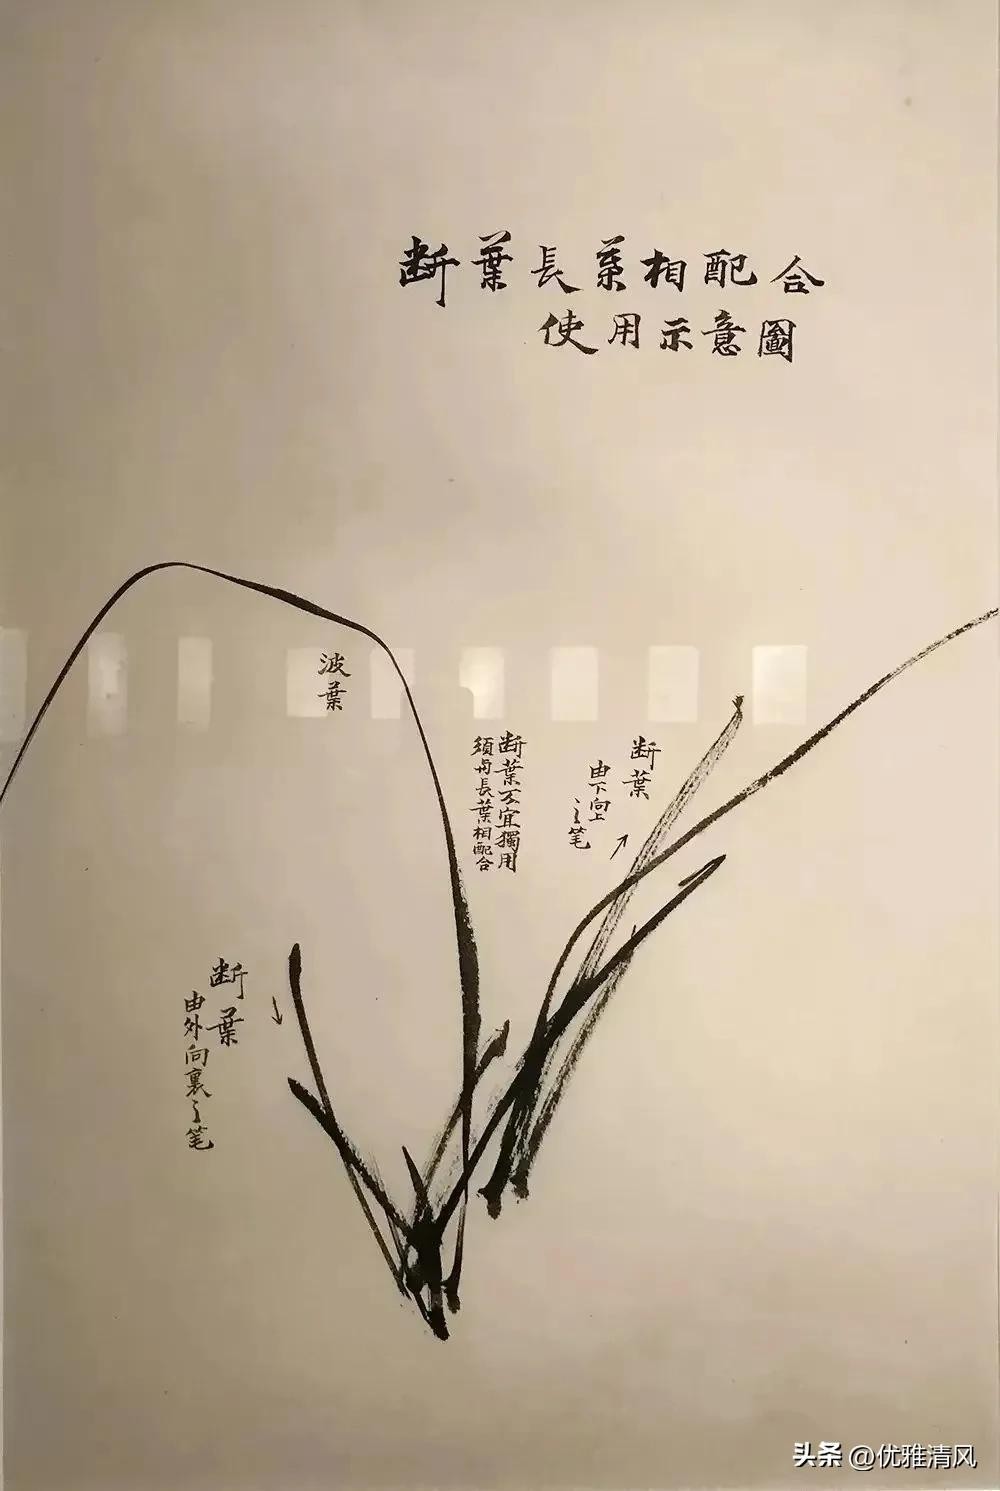 断葉長葉相配合
使用示意圖
波葉
断葉不宜獨用
須與長葉相配合
断葉
由下向上
之笔
断葉
由外向裏之笔
头条 @优雅清风